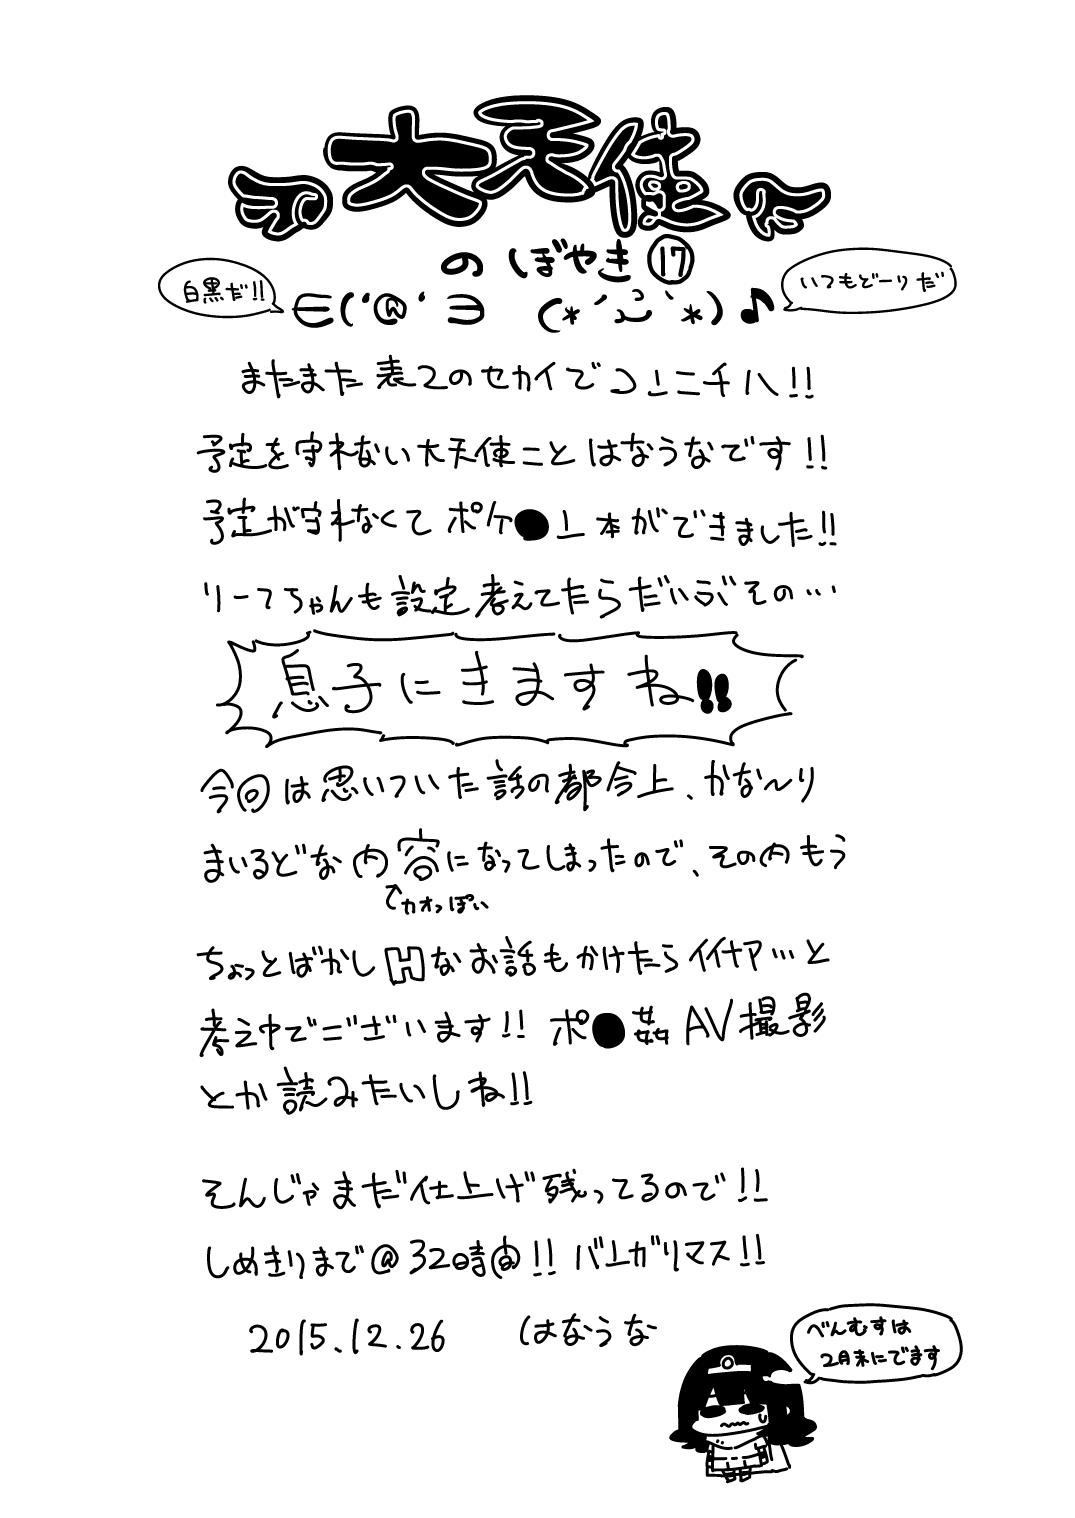 大天使
のぼやき⑰
白黒だ!!
∈('@'∋ (*´ω`*)♪
いつもどーりだ
またまた表2のセカイでコンニチハ!!
予定を守れない大天使ことはなうなです!!
予定が守れなくてポケ●ン本ができました!!
リーてちゃんも設定考えてたらだいぶその…
息子にきますね!!
今回は思いついた話の都合上、かな〜り
まいるどな内容になってしまったので、その内もう
カオっぽい
ちょっとばかしHなお話もかけたらイイナァ…と
考え中でございます!! ポ●姦AV撮影
とか読みたいしね!!
そんじゃまだ仕上げ残ってるので!!
しめきりまで@32時間!! バンガリマス!!
2015.12.26 はなうな
べんむすは
2月末にでます